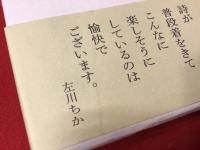 詩が
普段着をきて
こんなに
楽しそうに
しているのは
愉快で
ございます。
左川ちか